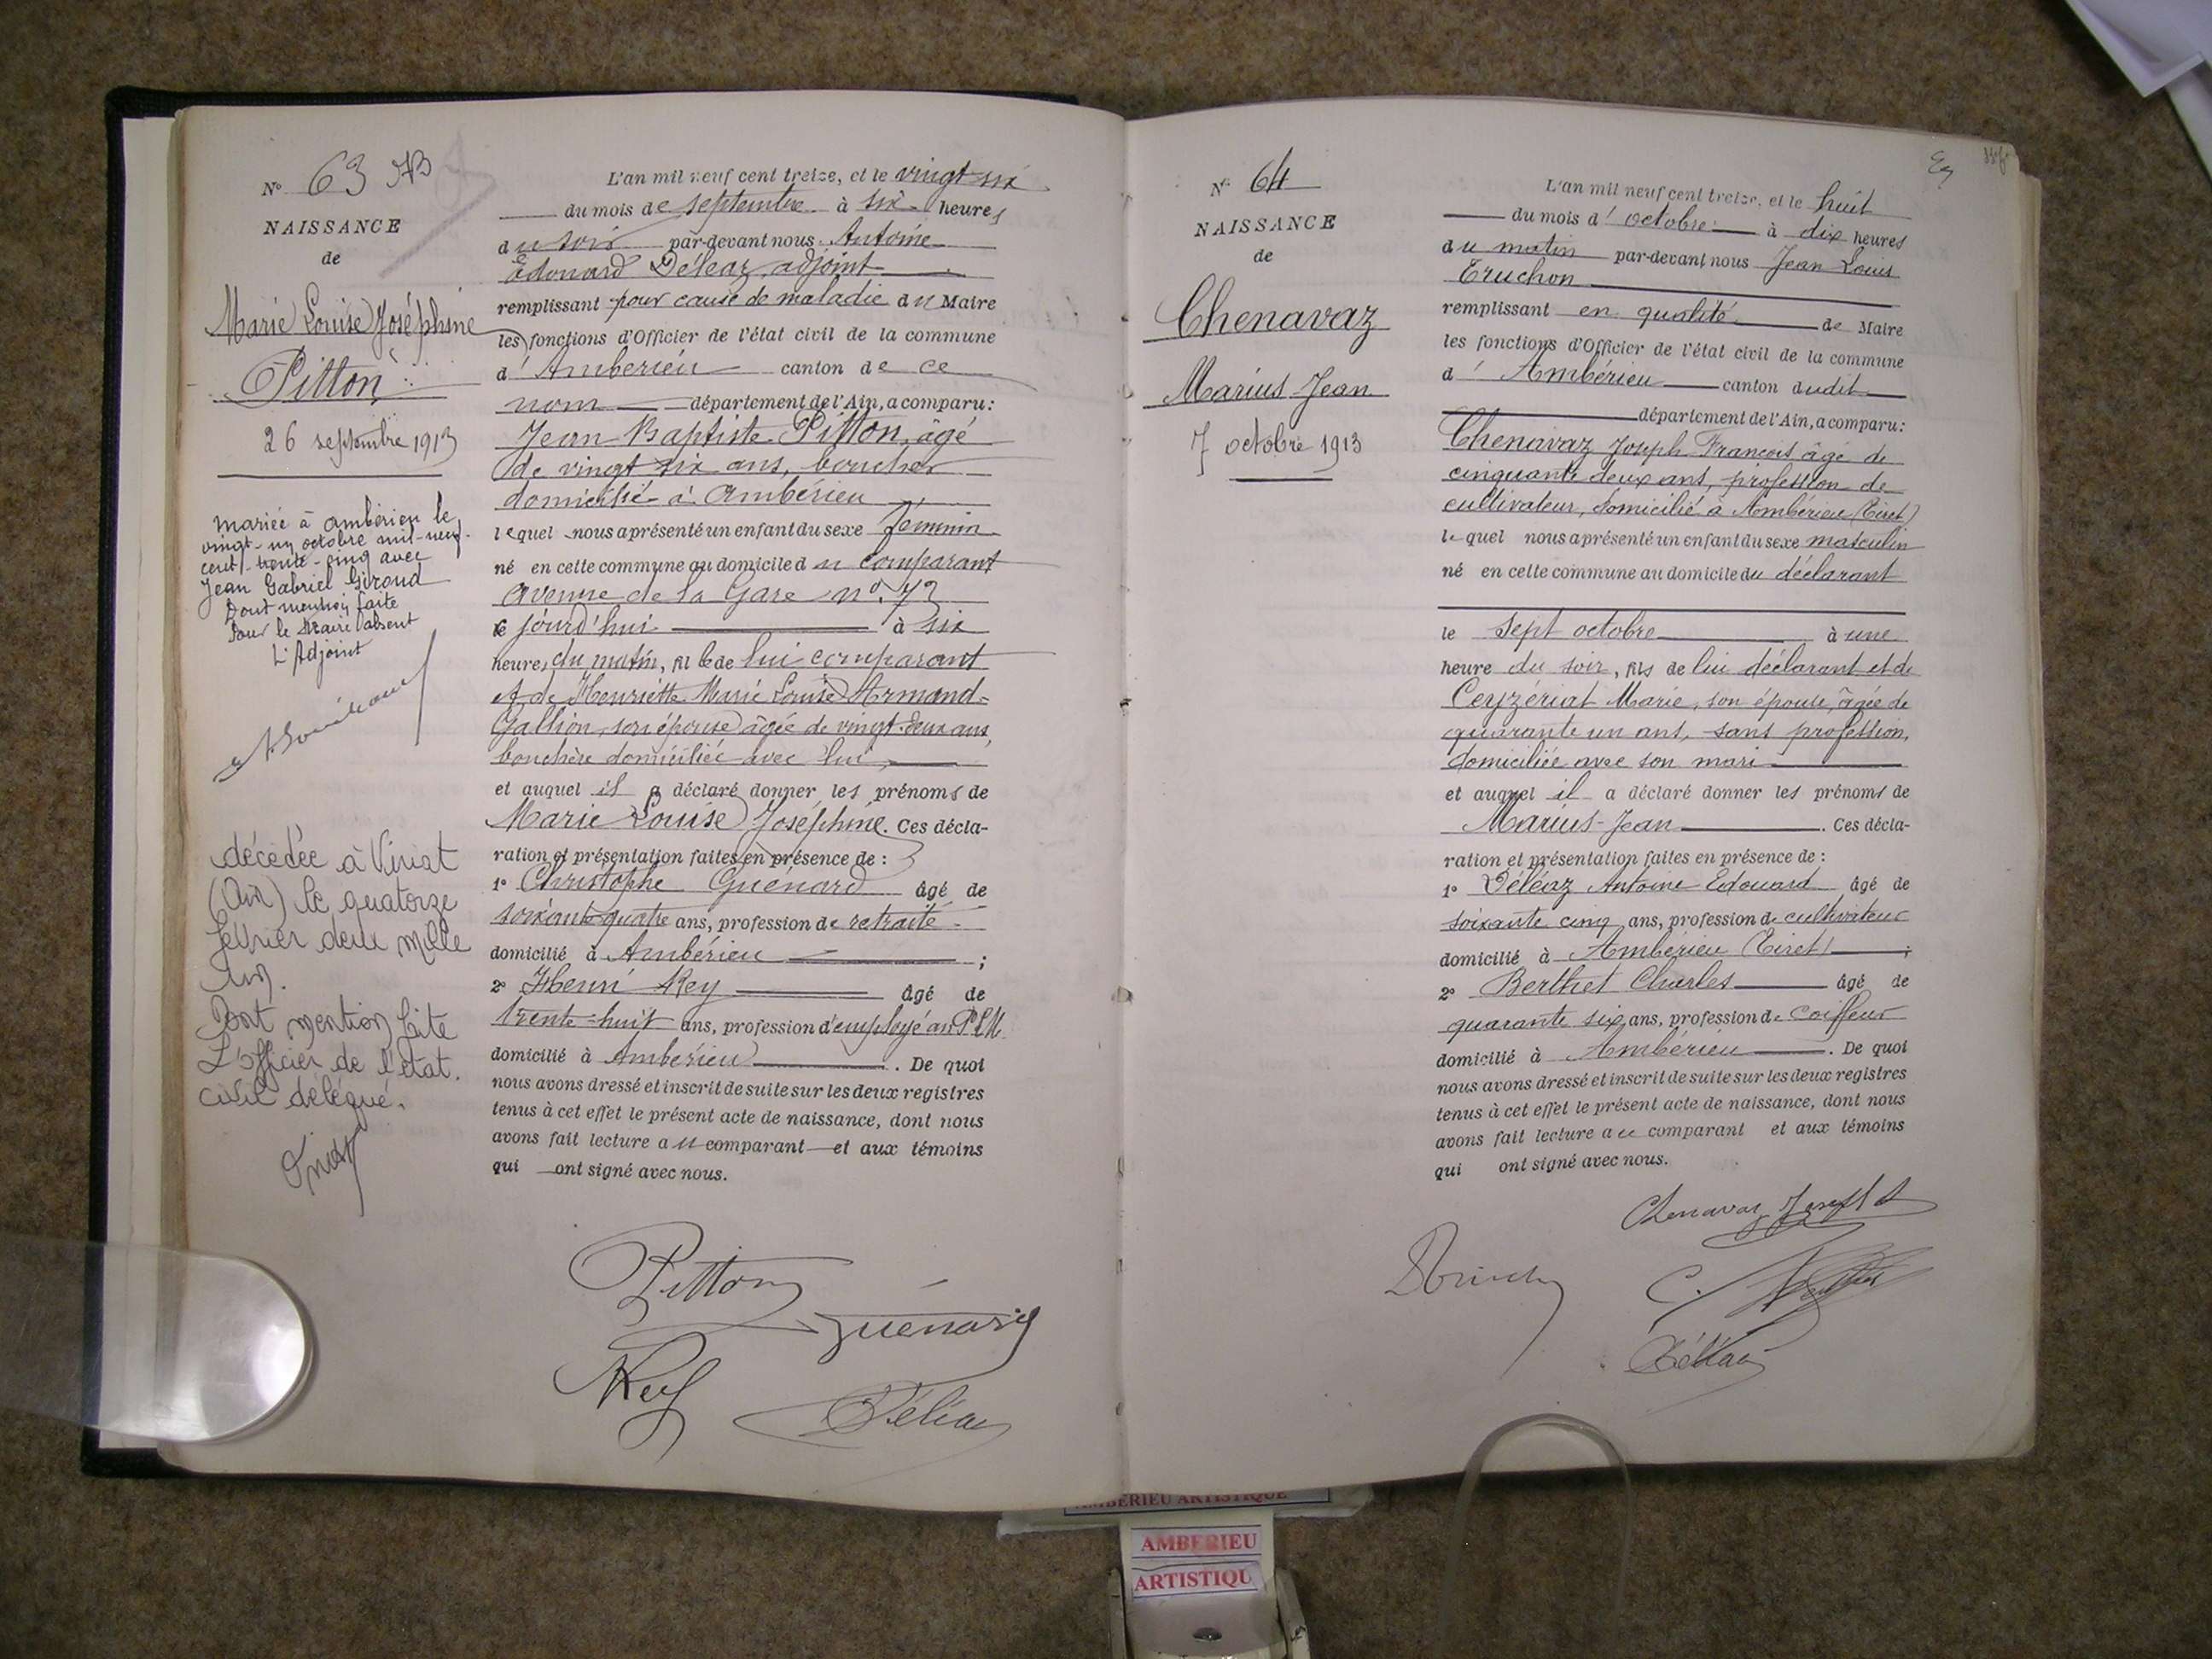 N° 63
NAISSANCE
de
Marie Louise Joséphine
Pitton
26 septembre 1913
mariée à ambérieu le
vingt-un octobre mil-neuf-
cent-trente-cinq avec
Jean Gabriel Giroud
Dont mention faite
Pour le Maire absent
L'Adjoint
décédée à Viriat
(Ain) le quatorze
février deux mille
un.
Dont mention faite
L'officier de l'état.
civil délégué.
L'an mil neuf cent treize, et le vingt six
du mois de septembre à six heures
du soir par-devant nous Antoine
Edouard Déléaz adjoint
remplissant pour cause de maladie du Maire
les fonctions d'Officier de l'état civil de la commune
d' Ambérieu canton de ce
nom département de l'Ain, a comparu:
Jean Baptiste Pitton, âgé
de vingt six ans, boucher
domicilié à Ambérieu
lequel nous a présenté un enfant du sexe féminin
né en cette commune au domicile du comparant
avenue de la Gare n°
ce jourd'hui à six
heures du matin, fille de lui comparant
et de Henriette Marie Louise Armand-
Gallion, son épouse âgée de vingt-deux ans,
bouchère domiciliée avec lui,
et auquel il a déclaré donner les prénoms de
Marie Louise Joséphine. Ces décla-
ration et présentation faites en présence de :
1° Christophe Guénard âgé de
soixante-quatre ans, profession de retraité
domicilié à Ambérieu ;
2° Henri Rey âgé de
trente-huit ans, profession d'employé au P.L.M.
domicilié à Ambérieu . De quoi
nous avons dressé et inscrit de suite sur les deux registres
tenus à cet effet le présent acte de naissance, dont nous
avons fait lecture au comparant et aux témoins
qui ont signé avec nous.
Pitton
Guénard
Rey
Déléaz
N° 64
NAISSANCE
de
Chenavaz
Marius Jean
7 octobre 1913
L'an mil neuf cent treize, et le huit
du mois d'octobre à dix heures
du matin par-devant nous Jean Louis
Truchon
remplissant en qualité de Maire
les fonctions d'Officier de l'état civil de la commune
d' Ambérieu canton dudit
département de l'Ain, a comparu:
Chenavaz Joseph François âgé de
cinquante deux ans, profession de
cultivateur, domicilié à Ambérieu (Tiret)
lequel nous a présenté un enfant du sexe masculin
né en cette commune au domicile du déclarant
le sept octobre à une
heure du soir, fils de lui déclarant et de
Ceyzériat Marie, son épouse, âgée de
quarante un ans, sans profession,
domiciliée avec son mari
et auquel il a déclaré donner les prénoms de
Marius-Jean . Ces décla-
ration et présentation faites en présence de :
1° Déléaz Antoine Edouard âgé de
soixante cinq ans, profession de cultivateur
domicilié à Ambérieu (Tiret) ;
2° Berthet Charles âgé de
quarante six ans, profession de coiffeur
domicilié à Ambérieu . De quoi
nous avons dressé et inscrit de suite sur les deux registres
tenus à cet effet le présent acte de naissance, dont nous
avons fait lecture au comparant et aux témoins
qui ont signé avec nous.
Chenavaz Joseph
Déléaz
AMBERIEU ARTISTIQUE
AMBERIEU
ARTISTIQU